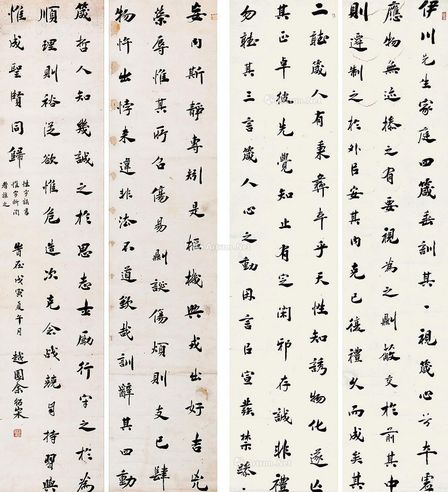 伊川先生家庭訓其一視箴心兮本虛
應物無迹操之有要視為之則蔽交於前其中
則遷制之於外以安其內克己復禮久而成矣其
二聽箴人有秉彝本乎天性知誘物化遂亡
其正卓彼先覺知止有定閑邪存誠非禮
勿聽其三言箴人心之動因言以宣發禁躁
妄內斯靜專矧是樞機興戎出好吉凶
榮辱惟其所召傷易則誕傷煩則支己肆
物忤出悖來違非法不道欽哉訓辭其四動
箴哲人知幾誠之於思志士勵行守之於為
順理則裕從欲惟危造次克念戰兢自持習與
惟成聖賢同歸
性字誤書
惟字
者諒之
戊寅夏午月
越園余紹宋